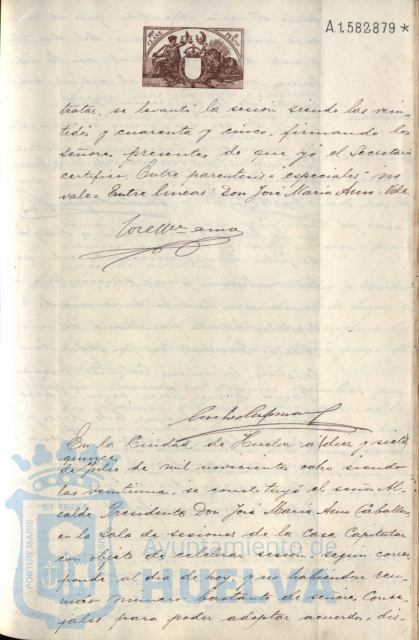 A1.582879 *
tratar, se levantó la sesión siendo las vein-
tidós y cuarenta y cinco, firmando los
señores presentes de que yó el Secretario
certifico. Entre parentesis "especiales" no
vale. Entre lineas: Don José María Amo. Vale.
José Mª amo
En la Ciudad de Huelva a (diez y siete)
quince
de Julio de mil novecientos ocho siendo
las veintiuna, se constituyó el señor Al-
calde Presidente Don José María Amo Caballero
en la Sala de sesiones de la Casa Capitular
con objeto de celebrar sesión segun corres-
ponde al dia de hoy, y no habiendose reu-
nido número bastante de señores Conce-
jales para poder adoptar acuerdos, dis-
PORTUS MARIS
ET TERRÆ
Ayuntamiento de
HUELVA